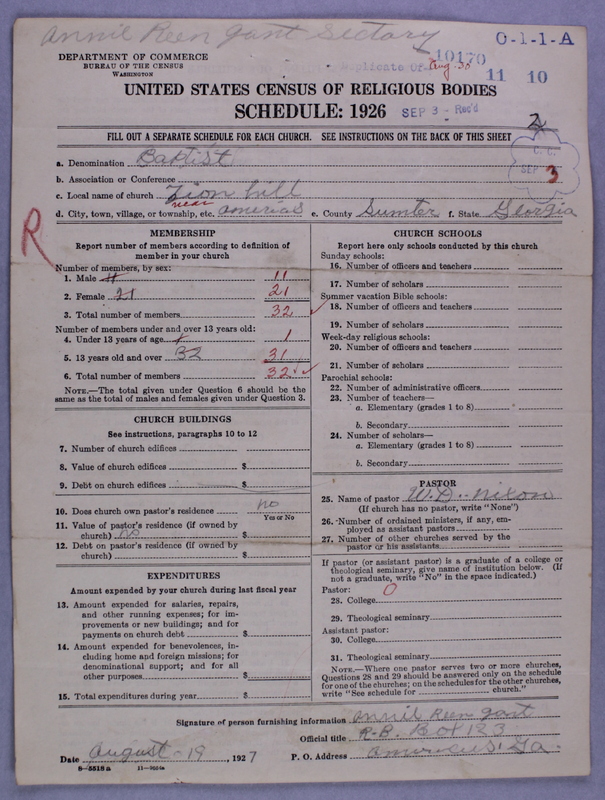 Annie Reen gant Sectary
0-1-1-A
DEPARTMENT OF COMMERCE
BUREAU OF THE CENSUS
WASHINGTON
10170
Aug. 30
11 10
UNITED STATES CENSUS OF RELIGIOUS BODIES
SCHEDULE: 1926
SEP 3 - Rec'd
2
FILL OUT A SEPARATE SCHEDULE FOR EACH CHURCH. SEE INSTRUCTIONS ON THE BACK OF THIS SHEET
C. C.
SEP 3
a. Denomination Baptist
b. Association or Conference
c. Local name of church Zion hill
near
d. City, town, village, or township, etc. americas e. County Sumter f. State Georgia
R
MEMBERSHIP
Report number of members according to definition of
member in your church
Number of members, by sex:
1. Male 11 11
2. Female 21 21
3. Total number of members 32
Number of members under and over 13 years old:
4. Under 13 years of age 1 1
5. 13 years old and over 32 31
6. Total number of members 32
NOTE.—The total given under Question 6 should be the
same as the total of males and females given under Question 3.
CHURCH BUILDINGS
See instructions, paragraphs 10 to 12
7. Number of church edifices
8. Value of church edifices $
9. Debt on church edifices $
10. Does church own pastor's residence no
Yes or No
11. Value of pastor's residence (if owned by
church) no $
12. Debt on pastor's residence (if owned by
church) $
EXPENDITURES
Amount expended by your church during last fiscal year
13. Amount expended for salaries, repairs,
and other running expenses; for im-
provements or new buildings; and for
payments on church debt $
14. Amount expended for benevolences, in-
cluding home and foreign missions; for
denominational support; and for all
other purposes $
15. Total expenditures during year $
CHURCH SCHOOLS
Report here only schools conducted by this church
Sunday schools:
16. Number of officers and teachers
17. Number of scholars
Summer vacation Bible schools:
18. Number of officers and teachers
19. Number of scholars
Week-day religious schools:
20. Number of officers and teachers
21. Number of scholars
Parochial schools:
22. Number of administrative officers
23. Number of teachers—
a. Elementary (grades 1 to 8)
b. Secondary
24. Number of scholars—
a. Elementary (grades 1 to 8)
b. Secondary
PASTOR
25. Name of pastor W. D. Nixon
(If church has no pastor, write "None")
26. Number of ordained ministers, if any, em-
ployed as assistant pastors
27. Number of other churches served by the
pastor or his assistants
If pastor (or assistant pastor) is a graduate of a college or
theological seminary, give name of institution below. (If
not a graduate, write "No" in the space indicated.)
Pastor: 0
28. College
29. Theological seminary
Assistant pastor:
30. College
31. Theological seminary
NOTE.—Where one pastor serves two or more churches,
Questions 28 and 29 should be answered only on the schedule
for one of the churches; on the schedules for the other churches,
write "See schedule for church."
Signature of person furnishing information annie Reen gant
Official title R-B. Box 123
Date August-19, 1927 P. O. Address americus, Ga.
8-5518a 11-9554a